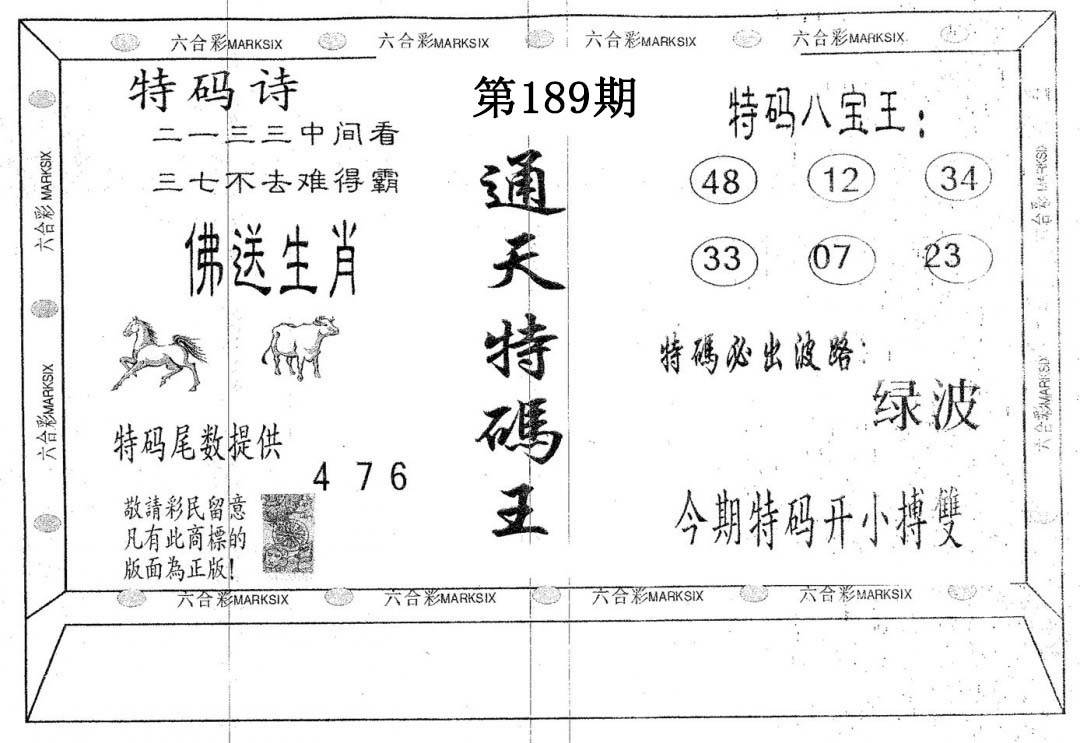 六合彩MARKSIX 六合彩MARKSIX 六合彩MARKSIX 六合彩MARKSIX
六合彩MARKSIX
六合彩MARKSIX
特码诗
二一三三中间看
三七不去难得霸
佛送生肖
特码尾数提供
4 7 6
敬請彩民留意
凡有此商標的
版面為正版!
第189期
通天特碼王
特码八宝王：
48 12 34
33 07 23
特碼必出波路：
绿波
今期特码开小搏雙
六合彩MARKSIX
六合彩MARKSIX
六合彩MARKSIX 六合彩MARKSIX 六合彩MARKSIX 六合彩MARKSIX